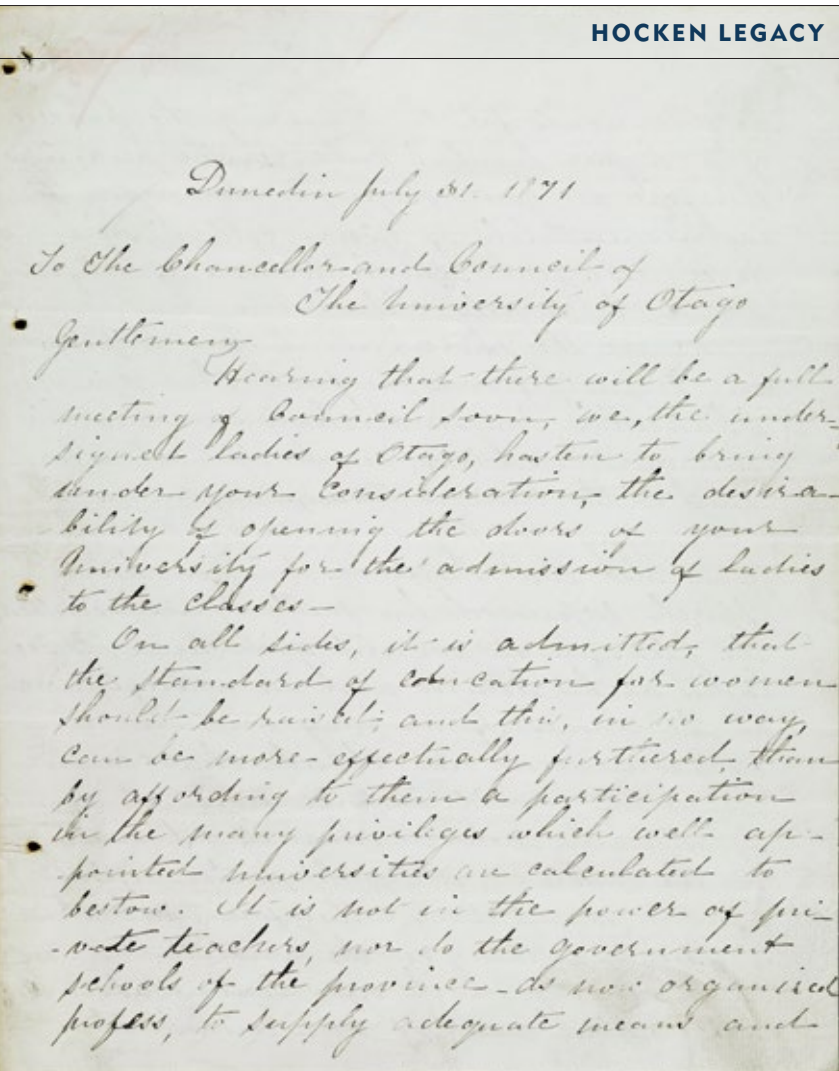 HOCKEN LEGACY
Dunedin July 31. 1871
To The Chancellor and Council of
The University of Otago
Gentlemen
Hearing that there will be a full
meeting of Council soon, we, the under-
signed ladies of Otago, hasten to bring
under your consideration, the desira-
bility of opening the doors of your
University for the admission of ladies
to the classes—
On all sides, it is admitted, that
the standard of education for women
should be raised; and this, in no way,
can be more effectually furthered, than
by affording to them a participation
in the many privileges which well ap-
pointed universities are calculated to
bestow. It is not in the power of pri-
-vate teachers, nor do the government
schools of the province - as now organised
profess, to supply adequate means and